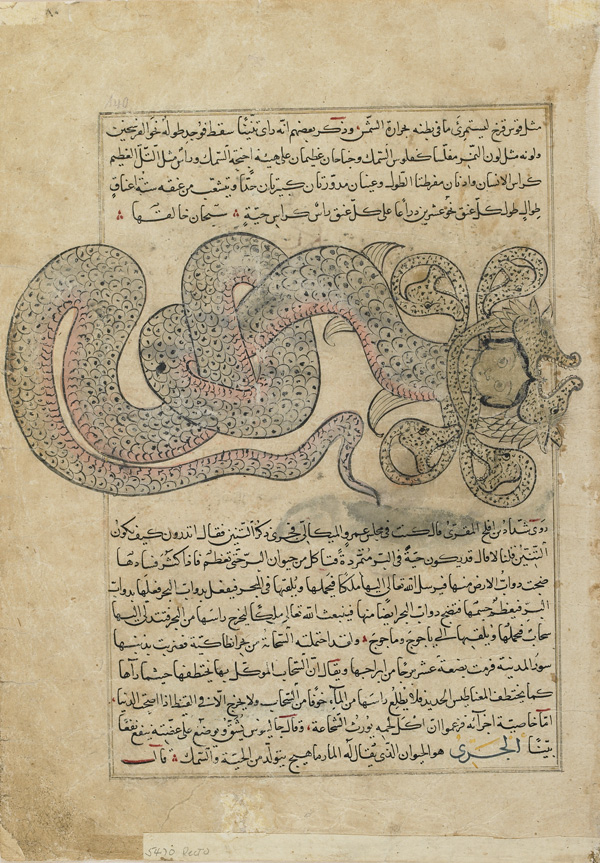 مثل قوس قزح ليستمرئ ما في بطنه بحرارة الشمس وذكر بعضهم انه راى تنينا سقط فوجد طوله نحو الفرسخين
ولونه مثل لون النمر مفلسا كفلوس السمك وجناحان عظيمان على هيئة اجنحة السمك وراس مثل التل العظيم
كراس الانسان واذنان مفرطتا الطول وعينان مدورتان كبيرتان جدا ويتشعب من عنقه ستة اعناق
طوال طول كل عنق نحو عشرين ذراعا على كل عنق راس كراس حية سبحان خالقها
روى شداد بن افلح المقرئ قال كنت في مجلس عمرو البكالي فجرى ذكر التنين فقال اتدرون كيف يكون
التنين قلنا لا قال قد يكون حية في البر متمردة فتاكل من حيوان البر حتى تعظم فاذا كثر فسادها
ضجت دواب الارض منها فيرسل الله تعالى اليها ملكا فيحملها ويلقيها في البحر فيفعل بدواب البحر فعلها بدواب
البر فيعظم جسمها فتضج دواب البحر ايضا منها فيبعث الله تعالى ملكا ليخرج راسها من البحر فيتدلى اليها
سحاب فيحملها ويلقيها الى ياجوج وماجوج ولقد احتملت السحابة من بحر انطاكية فضربت بذنبها
سور المدينة فرمت بضعة عشر برجا من ابراجها ويقال ان السحاب الموكل بها يختطفها حيثما رآها
كما يختطف المغناطيس الحديد فلا يطلع راسها من الماء خوفا من السحاب ولا يخرج الا في القيظ اذا اصحت الدنيا
اما خاصية اجزائه فزعموا ان اكل لحمه يورث الشجاعة وقال جالينوس يشق ويوضع على عضته ينفع نفعا
بينا الجرى هو الحيوان الذي يقال له المارماهيج يتولد من الحية والسمك قال
5470 recto